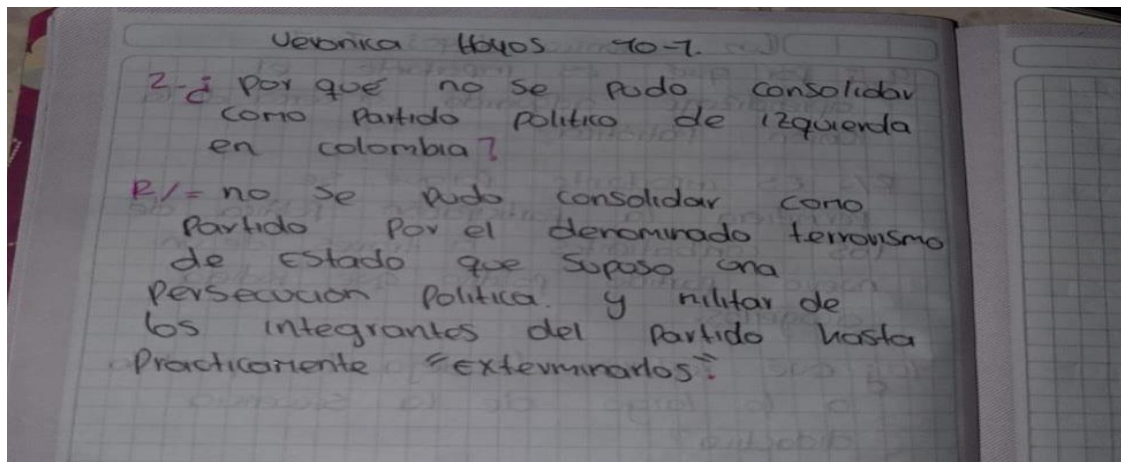 Veronica Hoyos 10-1.
2-¿ Por que no se pudo consolidar
como Partido politico de izquierda
en colombia?
R/= no se pudo consolidar como
Partido Por el denominado terrorismo
de Estado que Supuso una
Persecucion Politica. y militar de
los integrantes del Partido hasta
Practicamente "Exterminarlos".